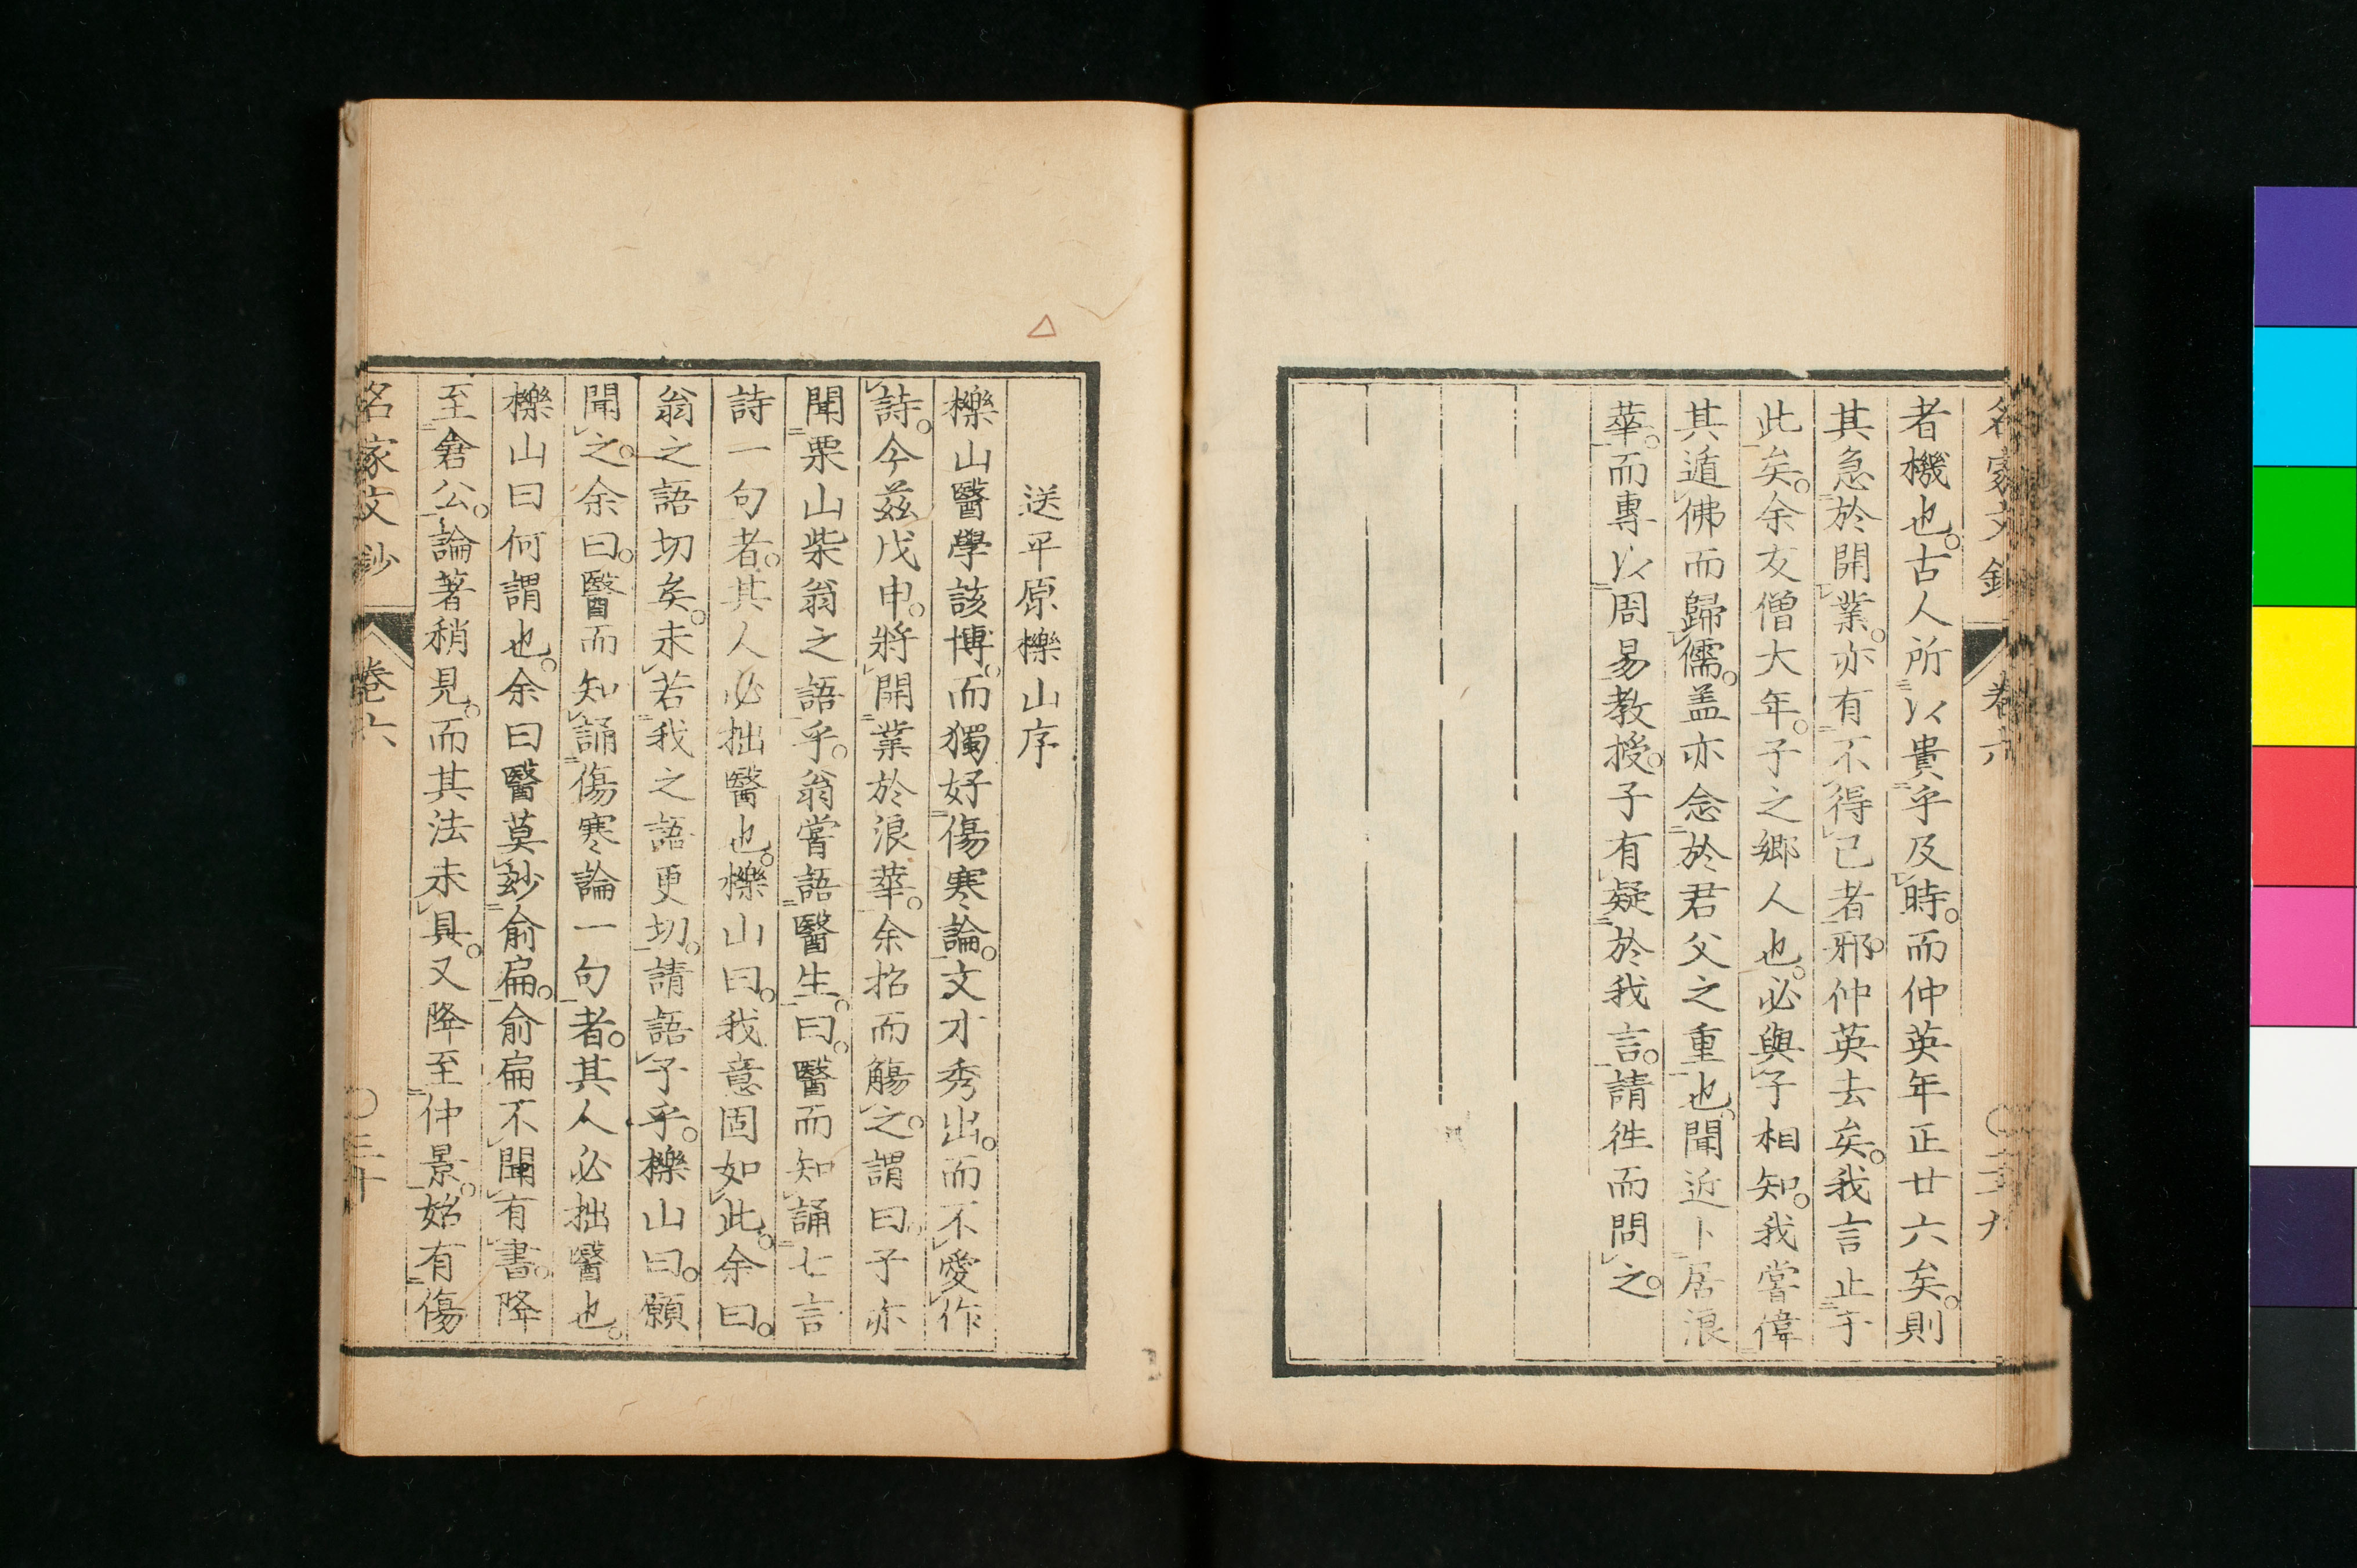 名家文鈔　卷六　〇二十九
者機也。古人所以貴乎及時。而仲英年正廿六矣。則
其急於開業。亦有不得已者邪。仲英去矣。我言止于
此矣。余友僧大年。子之鄉人也。必與子相知。我嘗偉
其遁佛而歸儒。盖亦念於君父之重也。聞近卜居浪
華。而專以周易教授。子有疑於我言。請徃而問之。
送平原櫟山序
櫟山醫學該博。而獨好傷寒論。文才秀出。而不愛作
詩。今茲戊申。將開業於浪華。余招而觴之。謂曰。子亦
聞栗山柴翁之語乎。翁嘗語醫生。曰。醫而知誦七言
詩一句者。其人必拙醫也。櫟山曰。我意固如此。余曰。
翁之語切矣。未若我之語更切。請語子乎。櫟山曰。願
聞之。余曰。醫而知誦傷寒論一句者。其人必拙醫也。
櫟山曰何謂也。余曰醫莫玅俞扁。俞扁不聞有書。降
至倉公。論著稍見。而其法未具。又降至仲景。始有傷
名家文鈔　卷六　〇三十